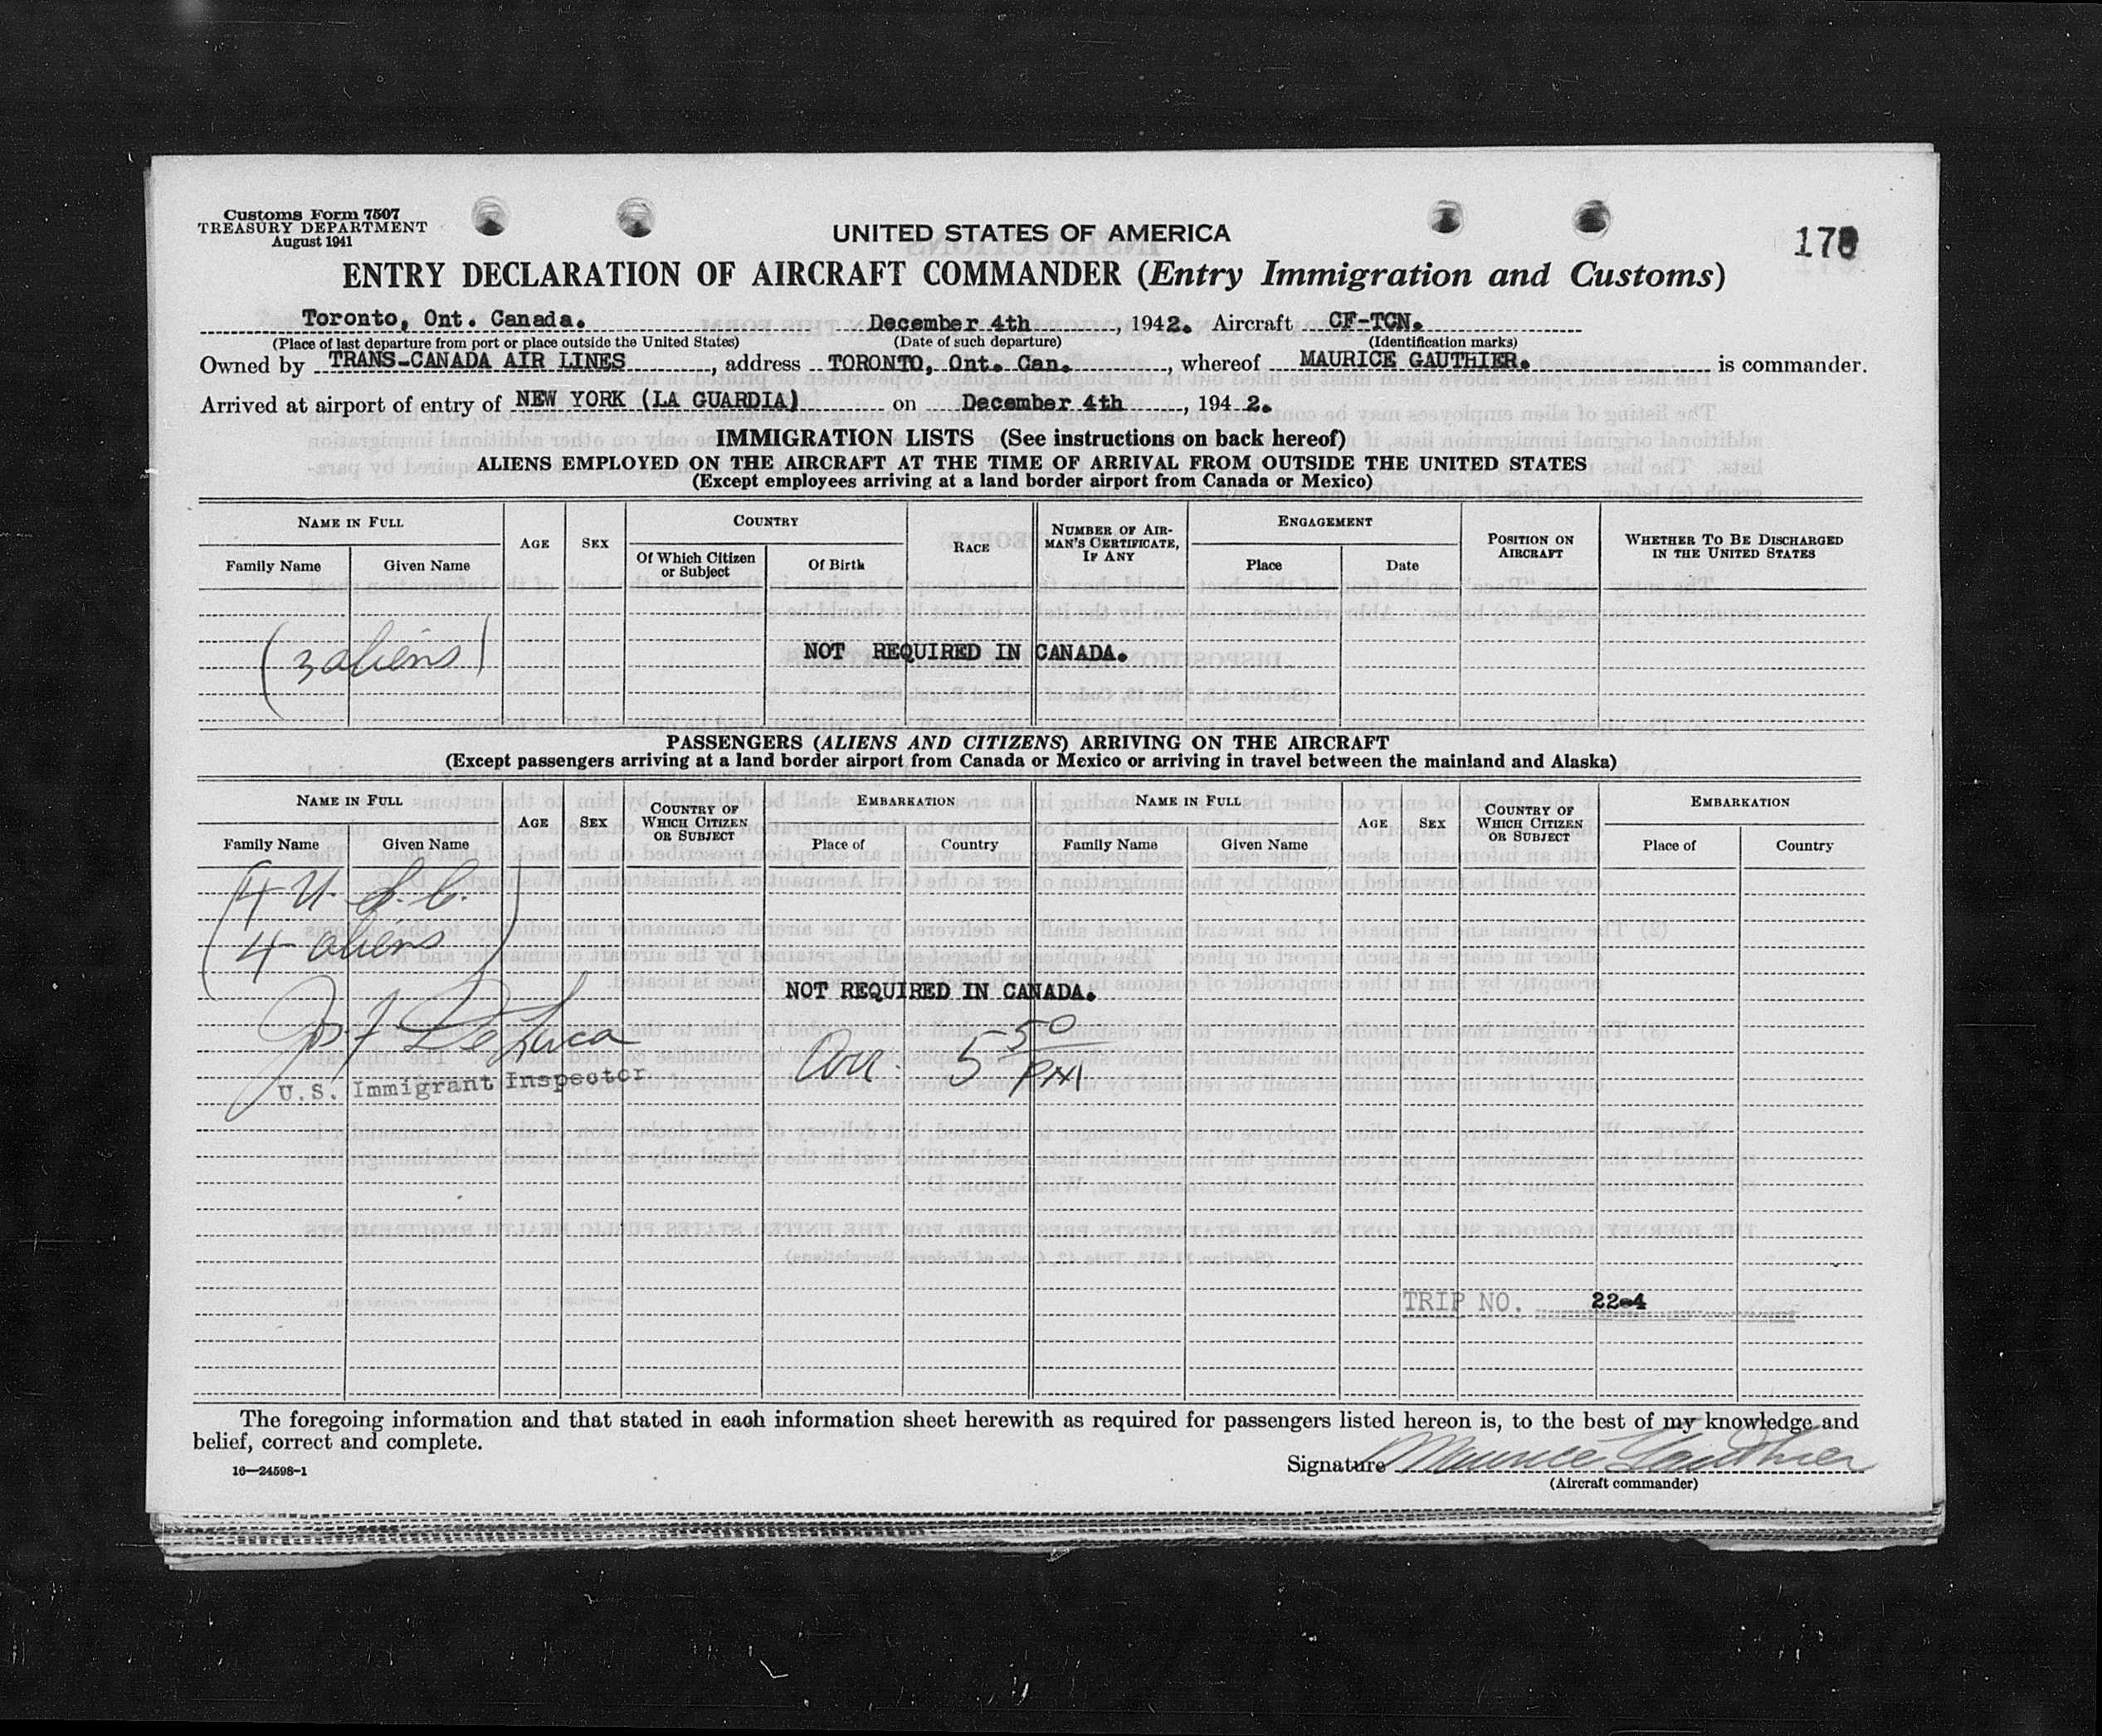 Customs Form 7507
TREASURY DEPARTMENT
August 1941
UNITED STATES OF AMERICA
ENTRY DECLARATION OF AIRCRAFT COMMANDER (Entry Immigration and Customs)
Toronto, Ont. Canada. December 4th, 1942. Aircraft CF-TCN.
(Place of last departure from port or place outside the United States) (Date of such departure) (Identification marks)
Owned by TRANS-CANADA AIR LINES, address TORONTO, Ont. Can., whereof MAURICE GAUTHIER. is commander.
Arrived at airport of entry of NEW YORK (LA GUARDIA) on December 4th, 194 2.
IMMIGRATION LISTS (See instructions on back hereof)
ALIENS EMPLOYED ON THE AIRCRAFT AT THE TIME OF ARRIVAL FROM OUTSIDE THE UNITED STATES
(Except employees arriving at a land border airport from Canada or Mexico)
NAME IN FULL AGE SEX COUNTRY RACE NUMBER OF AIRMAN'S CERTIFICATE, IF ANY ENGAGEMENT POSITION ON AIRCRAFT WHETHER TO BE DISCHARGED IN THE UNITED STATES
Family Name Given Name Of Which Citizen or Subject Of Birth Place Date
(3 aliens) NOT REQUIRED IN CANADA.
PASSENGERS (ALIENS AND CITIZENS) ARRIVING ON THE AIRCRAFT
(Except passengers arriving at a land border airport from Canada or Mexico or arriving in travel between the mainland and Alaska)
NAME IN FULL AGE SEX COUNTRY OF WHICH CITIZEN OR SUBJECT EMBARKATION NAME IN FULL AGE SEX COUNTRY OF WHICH CITIZEN OR SUBJECT EMBARKATION
Family Name Given Name Place of Country Family Name Given Name Place of Country
(4 U.S.C.
4 aliens)
NOT REQUIRED IN CANADA.
Jos. F. DeLuca
Arr. 5 50 PM
U.S. Immigrant Inspector
TRIP NO. 22-4
The foregoing information and that stated in each information sheet herewith as required for passengers listed hereon is, to the best of my knowledge and
belief, correct and complete.
16—24598-1
Signature Maurice Gauthier
(Aircraft commander)